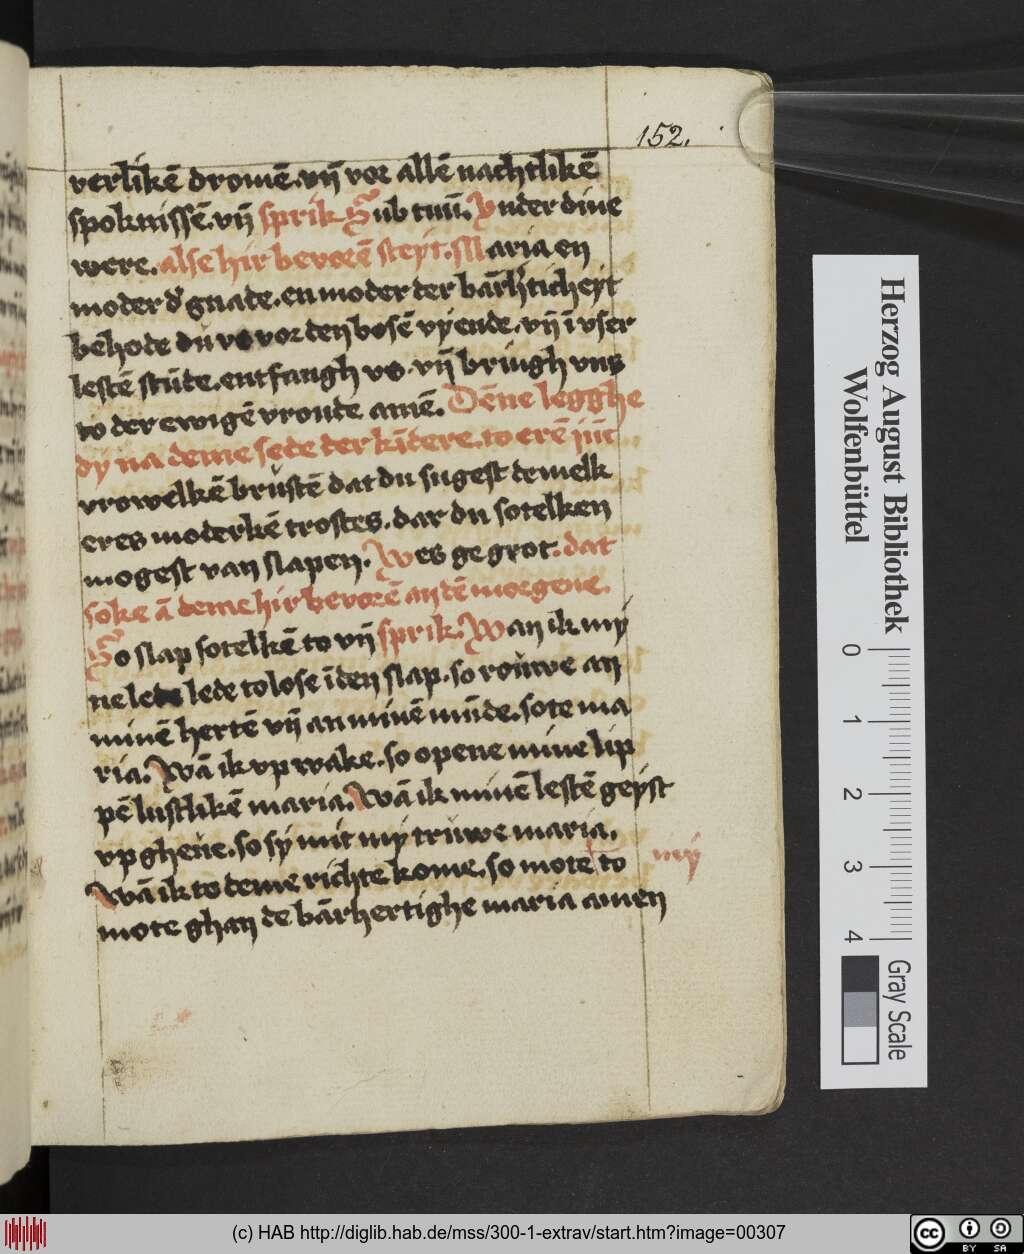 152.
verlikē dromē. vn̄ vor allē nachtlikē
spoknissē. vn̄ sprik Sub tuū. Vnder dine
were. alse hir bevorē steyt. Maria en
moder d' gnade. en moder der bārh'ticheyt
behode du vs vor den bosē vyende. vn̄ ī vser
lestē stūde. entfangh vs. vn̄ bringh vns
to der ewigē vroude amē. Dēne legghe
dy na deme sede der kīdere. to erē jūc
vrowelkē brustē dat du sugest de melk
eres moderkē trostes. dar du sotelken
mogest van slapen. Wes gegrot. dat
soke ā deme hir bevorē an dē morgene.
So slap sotelkē to vn̄ sprik. Wan ik my
ne lede lede to lose ī den slap. so rouwe an
minē hertē vn̄ an minē mūde. sote ma
ria. Wā ik vp wake. so opene mine lip
pē lustlikē maria. Wā ik minē lestē geyst
vp gheue. so sy mit my truwe maria.
Wā ik to deme richte kome. so mote to my
mote ghan de bārhertighe maria amen
Herzog August Bibliothek
Wolfenbüttel
0 1 2 3 4
Gray Scale
(c) HAB http://diglib.hab.de/mss/300-1-extrav/start.htm?image=00307
cc BY SA